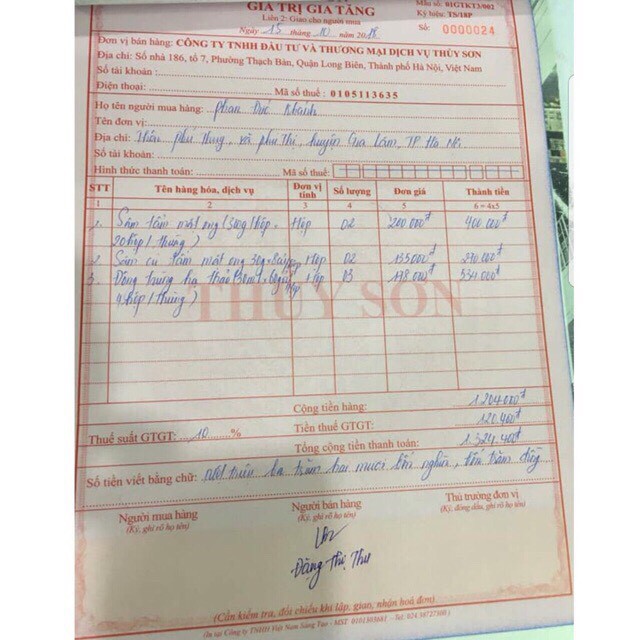 GIÁ TRỊ GIA TĂNG
Liên 2: Giao cho người mua
Ngày 15 tháng 10 năm 2018
Mẫu số: 01GTKT3/002
Ký hiệu: TS/18P
Số: 0000024
Đơn vị bán hàng: CÔNG TY TNHH ĐẦU TƯ VÀ THƯƠNG MẠI DỊCH VỤ THỦY SƠN
Địa chỉ: Số nhà 186, tổ 7, Phường Thạch Bàn, Quận Long Biên, Thành phố Hà Nội, Việt Nam
Số tài khoản:
Điện thoại: Mã số thuế: 0105113635
Họ tên người mua hàng: Phan Đức Khánh
Tên đơn vị:
Địa chỉ: Thôn Phú Thụy, xã Phú Thị, huyện Gia Lâm, TP Hà Nội
Số tài khoản:
Hình thức thanh toán: Mã số thuế:
STT Tên hàng hóa, dịch vụ Đơn vị tính Số lượng Đơn giá Thành tiền
1 2 3 4 5 6 = 4x5
1. Sâm tẩm mật ong (300g/hộp × Hộp 02 200 000đ 400 000đ
20hộp/thùng)
2. Sâm củ tẩm mật ong Hộp 02 135 000đ 270 000đ
3. Đông trùng hạ thảo Hộp 03 178.000đ 534 000đ
hộp/thùng)
THUY SON
Cộng tiền hàng: 1 204 000đ
Thuế suất GTGT: 10 % Tiền thuế GTGT: 120.400đ
Tổng cộng tiền thanh toán: 1.324.400đ
Số tiền viết bằng chữ: Một triệu ba trăm hai mươi bốn nghìn, bốn trăm đồng
Người mua hàng Người bán hàng Thủ trưởng đơn vị
(Ký, ghi rõ họ tên) (Ký, ghi rõ họ tên) (Ký, đóng dấu, ghi rõ họ tên)
Đặng Thị Thu
(Cần kiểm tra, đối chiếu khi lập, giao, nhận hoá đơn)
(In tại Công ty TNHH Việt Nam Sáng Tạo - MST 0101305681 - Tel: 024.38727588)